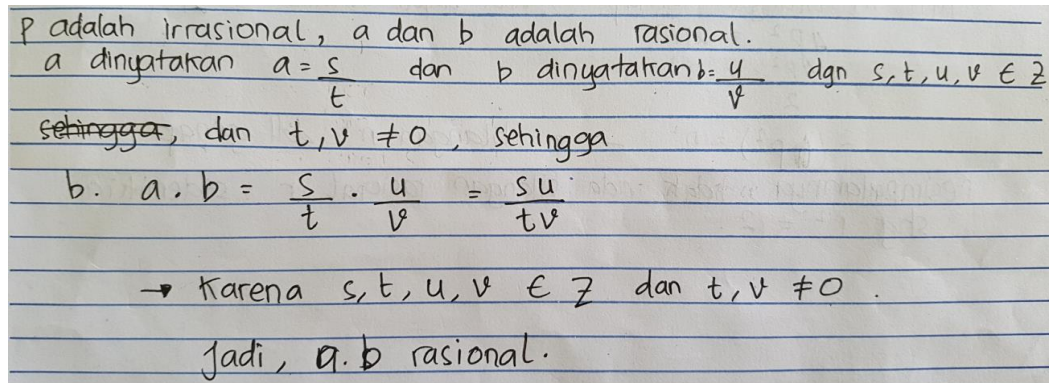 P adalah irrasional, a dan b adalah rasional.
a dinyatakan a = s/t dan b dinyatakan b = u/v dgn s, t, u, v ∈ Z
sehingga, dan t, v ≠ 0, sehingga
b. a . b = s/t . u/v = su/tv
→ Karena s, t, u, v ∈ Z dan t, v ≠ 0.
Jadi, a.b rasional.